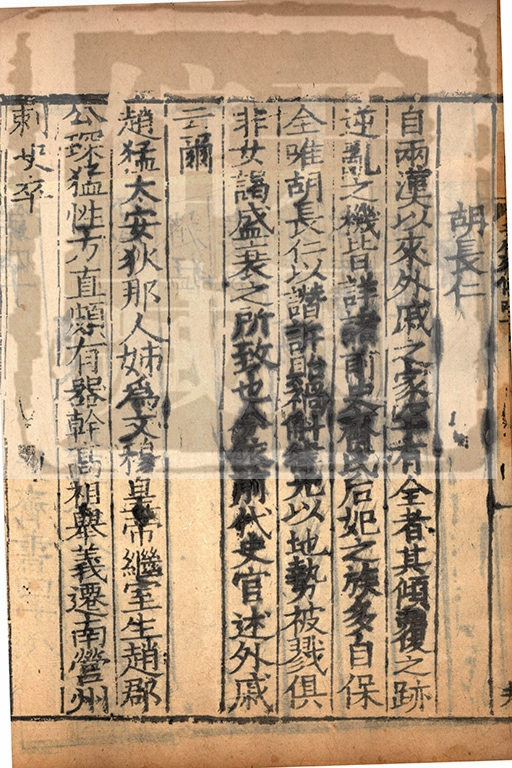 胡長仁
自兩漢以來外戚之家罕有全者其傾覆之跡
逆亂之機皆詳諸前史齊氏后妃之族多自保
全唯胡長仁以譖訴貽禍斛律光以地勢被戮俱
非女謁盛衰之所致也今依前代史官述外戚
云爾
趙猛太安狄那人姊爲文穆皇帝繼室生趙郡
公琛猛性方直頗有器幹高祖舉義遷南營州
刺史卒